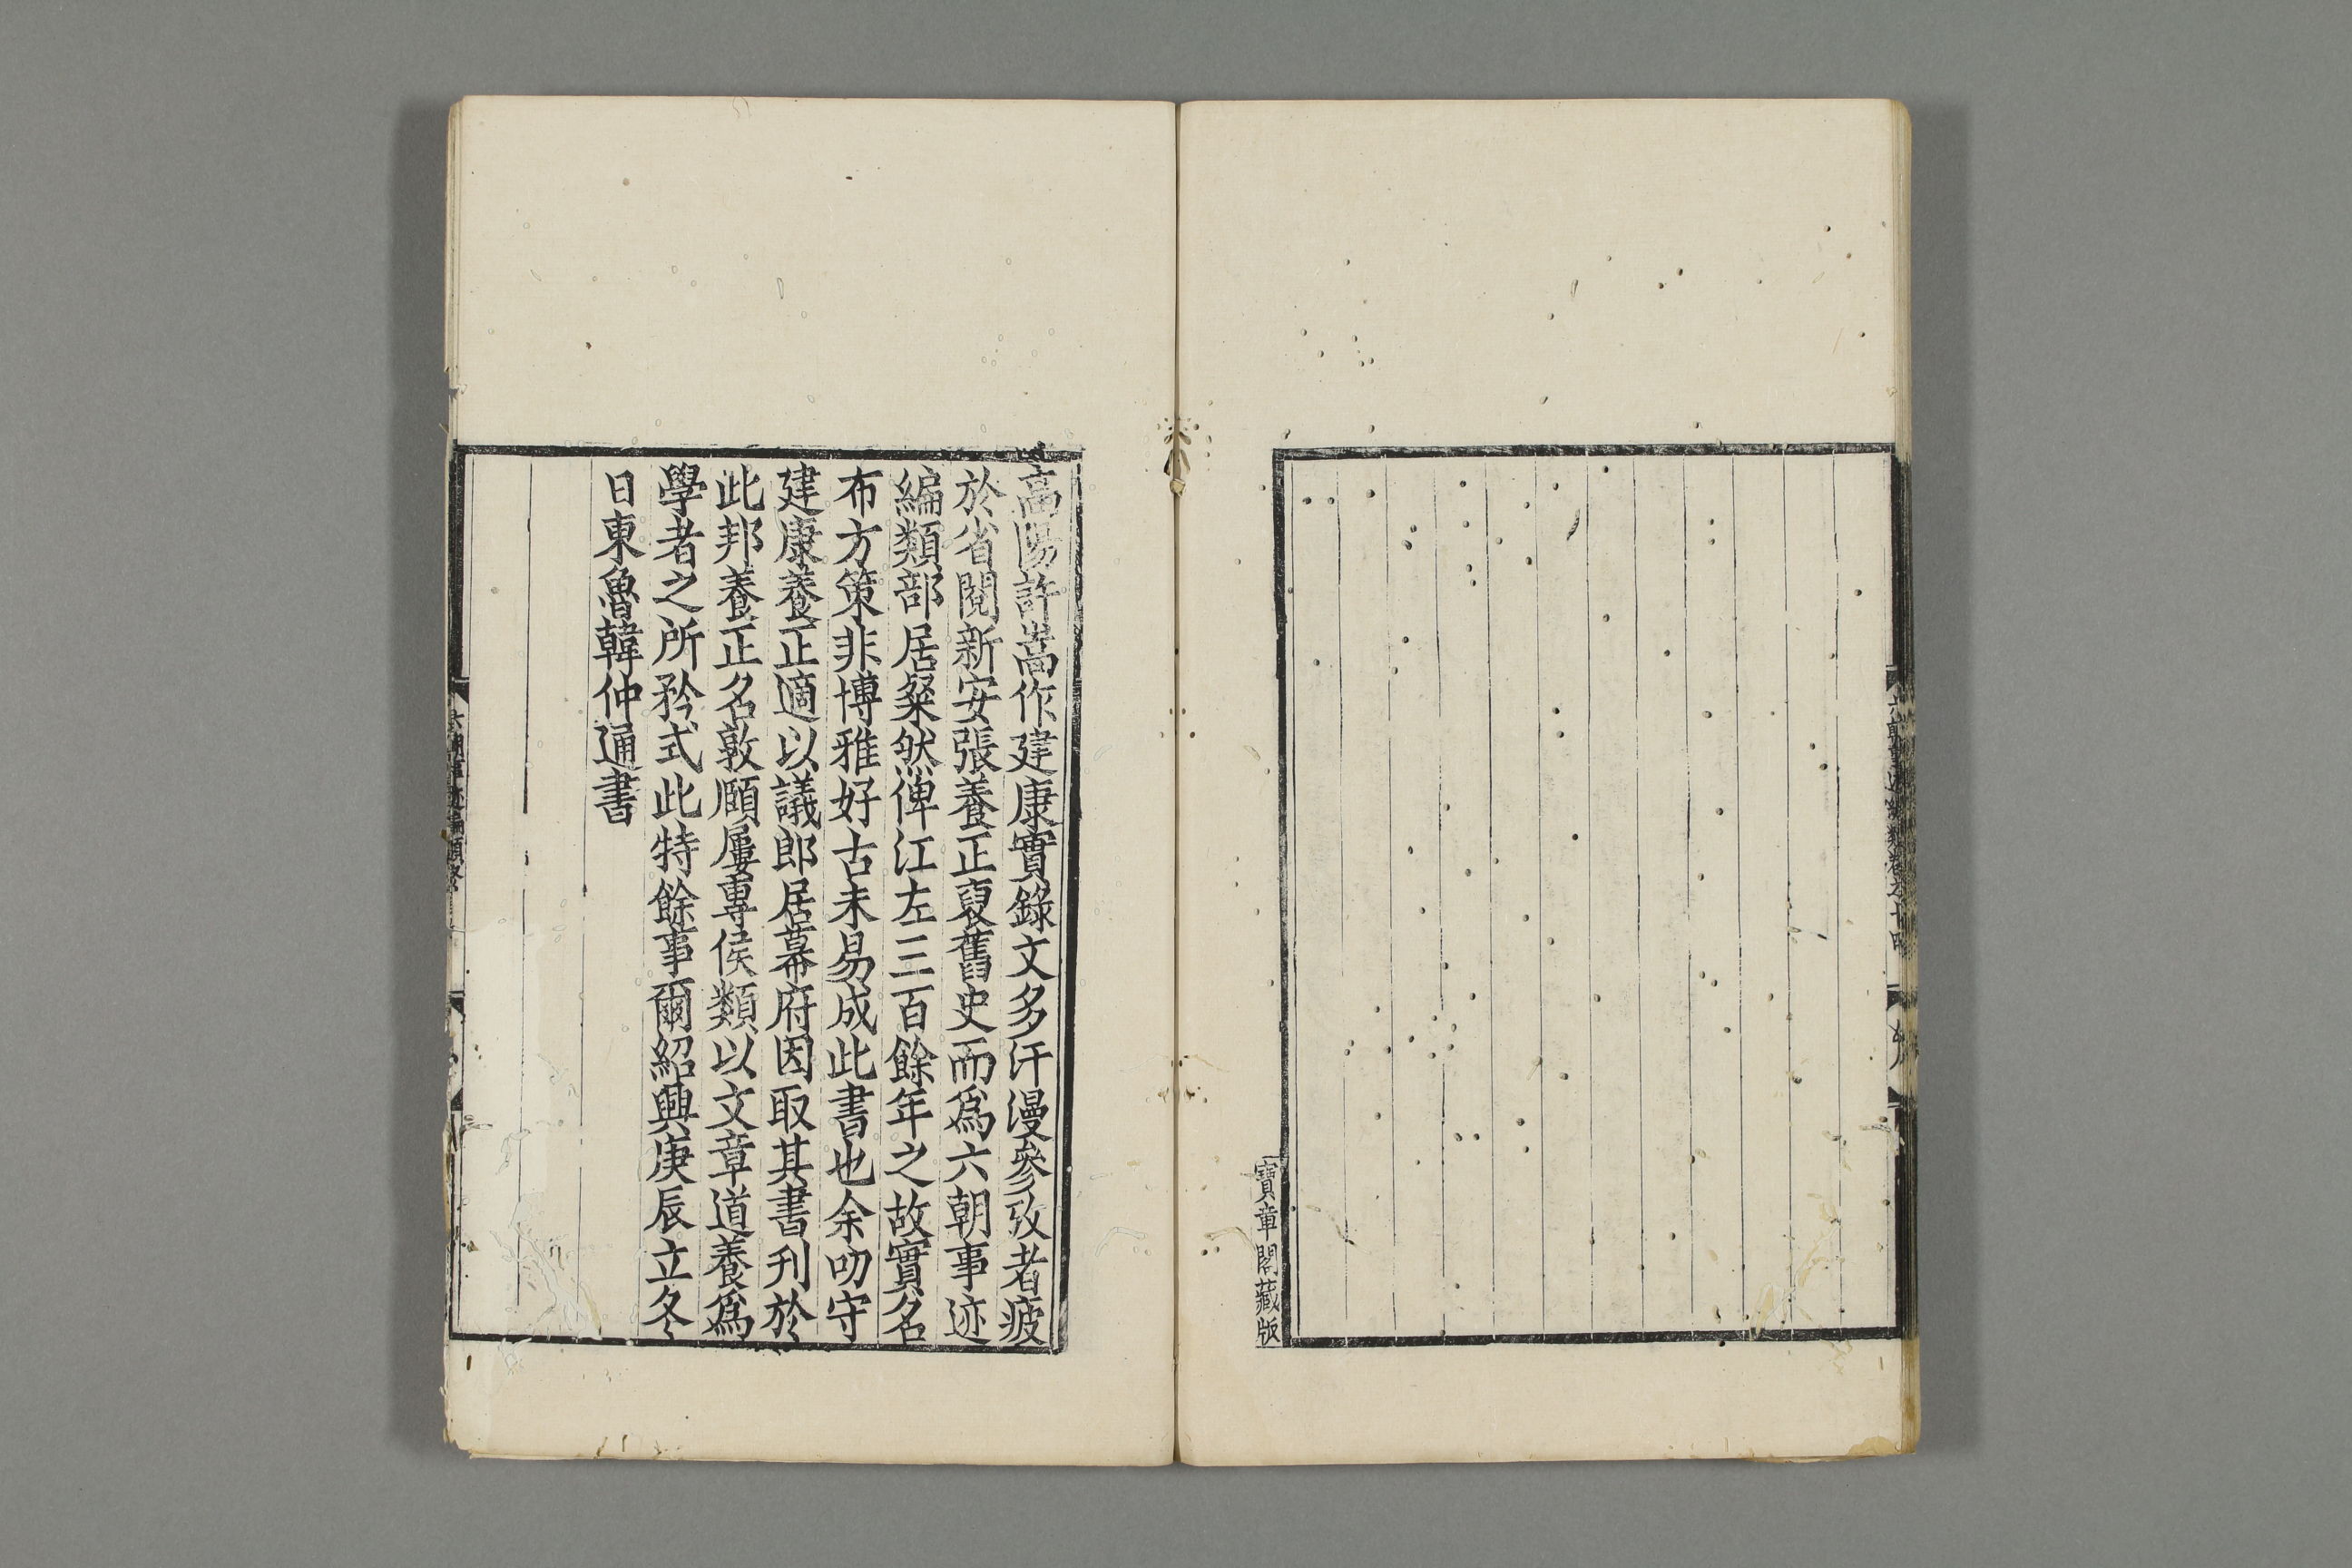 寶章閣藏版
高陽許嵩作建康實錄文多汗漫參攷者疲
於省閱新安張養正裒舊史而爲六朝事迹
編類部居粲然俾江左三百餘年之故實名
布方策非博雅好古未易成此書也余叨守
建康養正適以議郎居幕府因取其書刋於
此邦養正名敦頤屢專侯類以文章道養爲
學者之所矜式此特餘事爾紹興庚辰立冬
日東魯韓仲通書